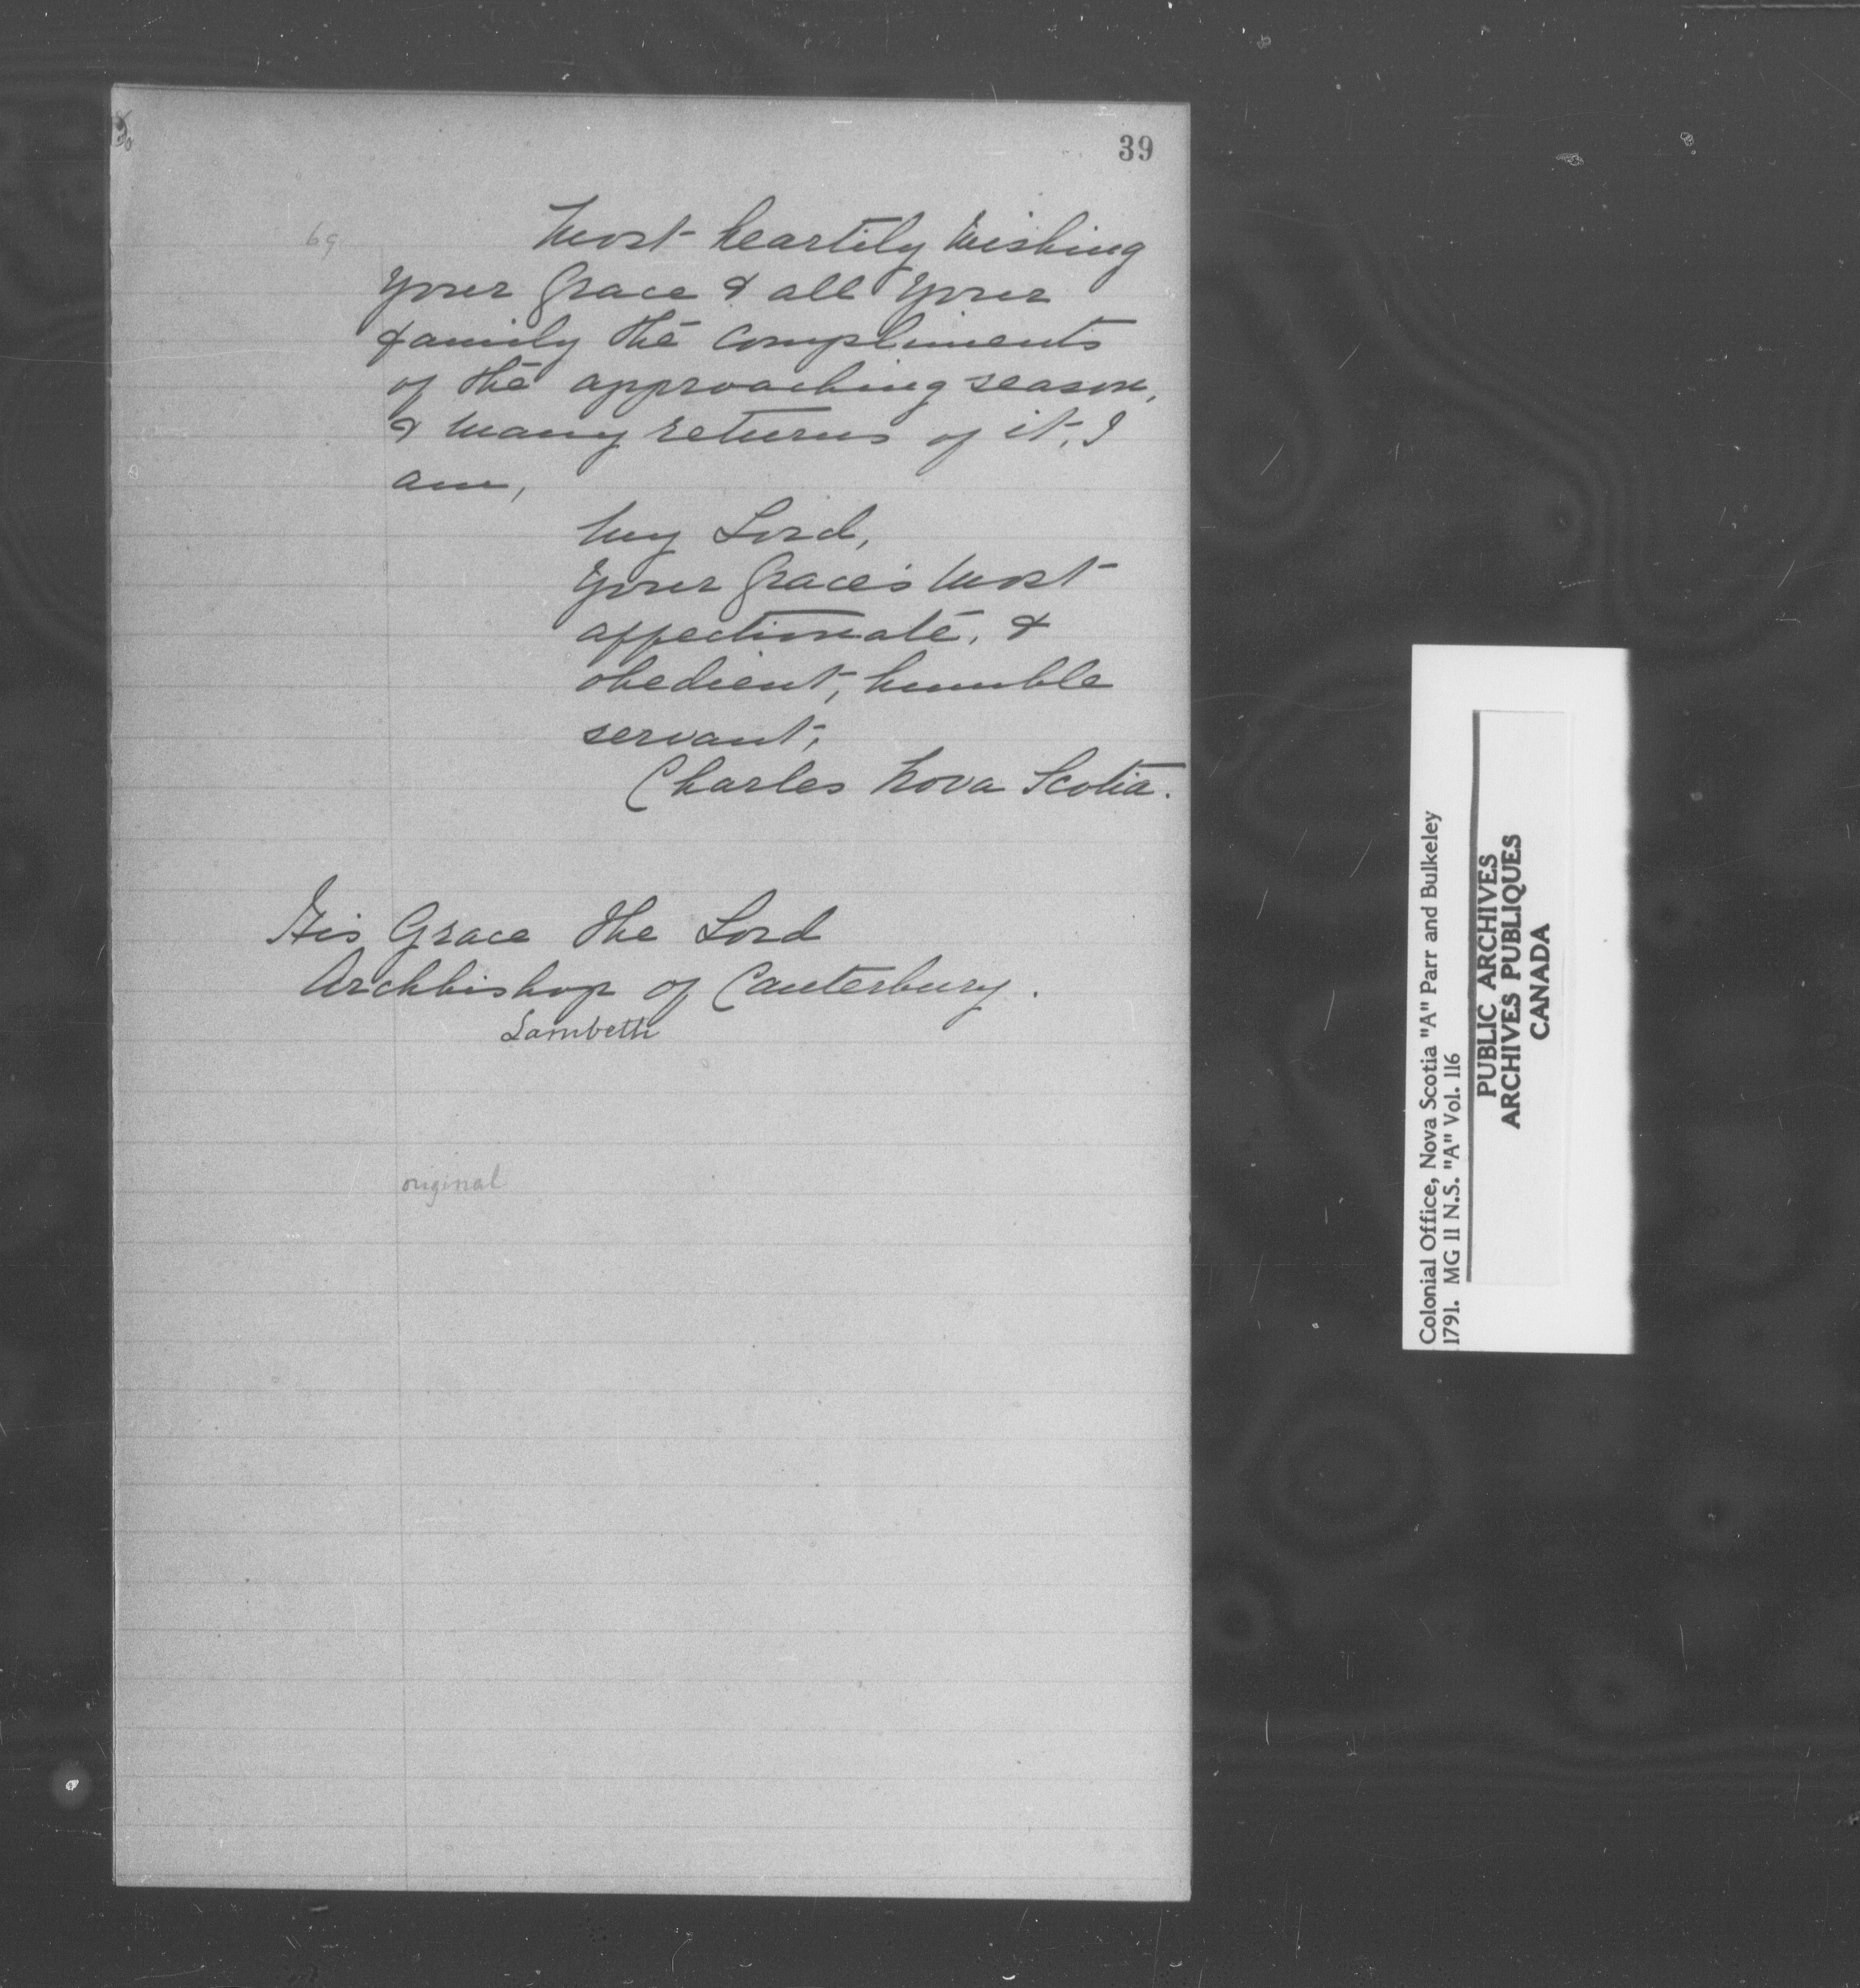 39
69
Most heartily wishing
Your Grace & all Your
family the compliments
of the approaching season,
& many returns of it, I
am,
My Lord,
Your Grace's most
affectionate, &
obedient, humble
servant,
Charles Nova Scotia.
His Grace the Lord
Archbishop of Canterbury.
Lambeth
original
Colonial Office, Nova Scotia "A" Parr and Bulkeley
1791. MG 11 N.S. "A" Vol. 116
PUBLIC ARCHIVES
ARCHIVES PUBLIQUES
CANADA